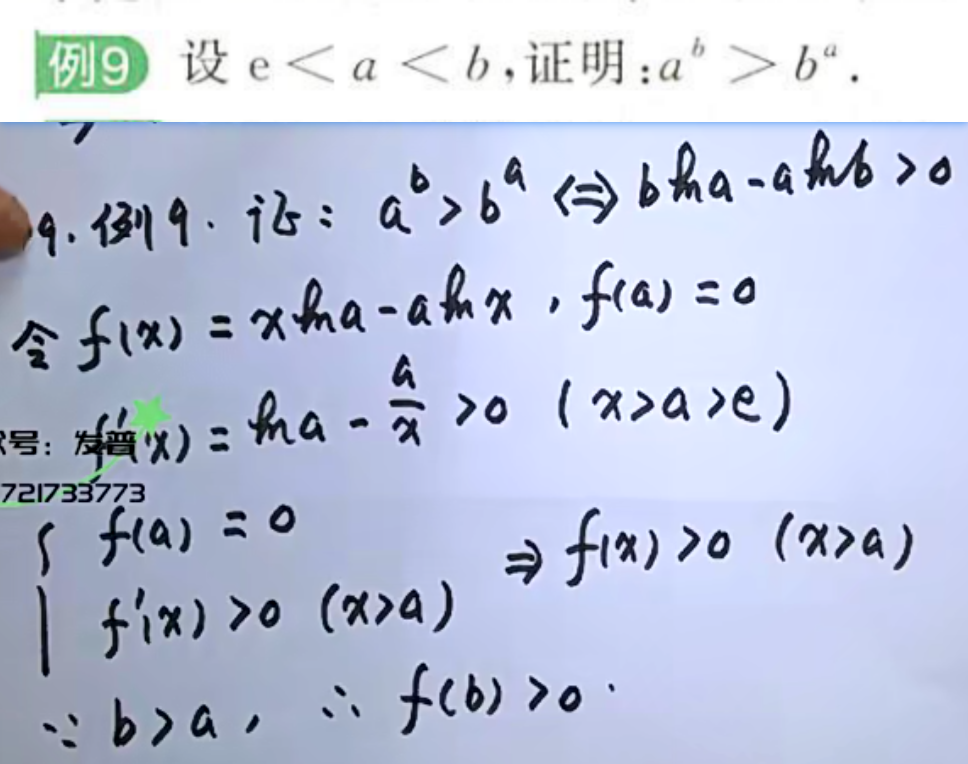 例9 设 e < a < b,证明:a^b > b^a.
9. 例9. 证: a^b > b^a ⇔ b ln a - a ln b > 0
令 f(x) = x ln a - a ln x , f(a) = 0
f'(x) = ln a - a/x > 0 ( x > a > e )
号: 发普
721733773
{ f(a) = 0
f'(x) > 0 (x > a) ⇒ f(x) > 0 (x > a)
∵ b > a , ∴ f(b) > 0 .